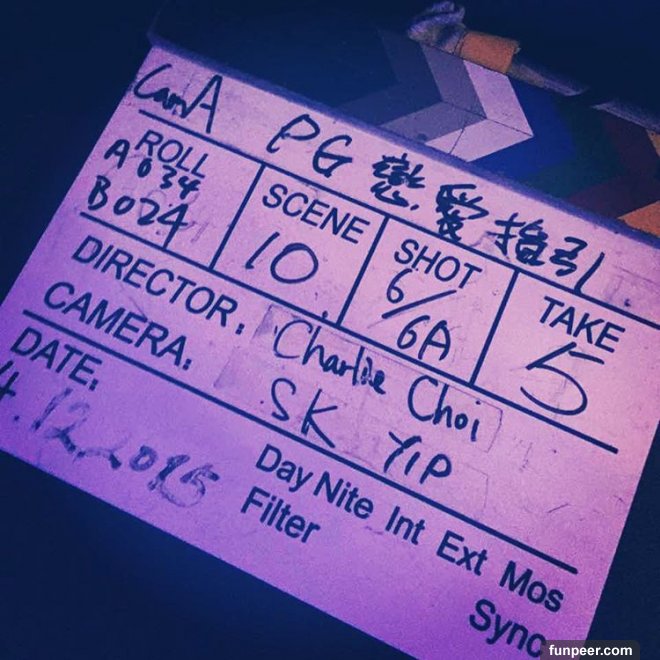 Cam A PG 戀愛指引
ROLL SCENE SHOT TAKE
A 034 10 6/6A 5
B024
DIRECTOR: Charlie Choi
CAMERA: SK YIP
DATE: 4.12.2015
Day Nite Int Ext Mos
Filter Sync
funpeer.com